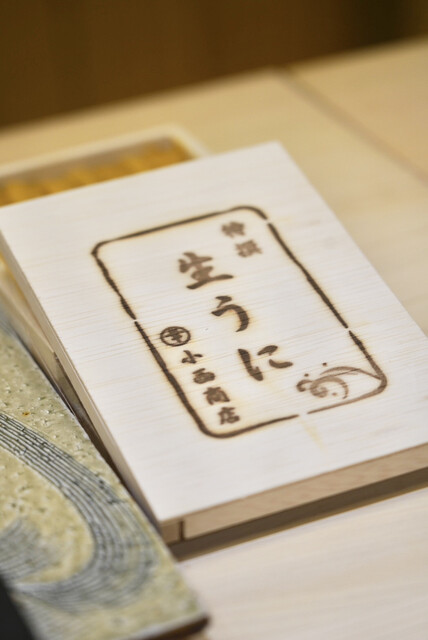 特撰
生うに
小西商店